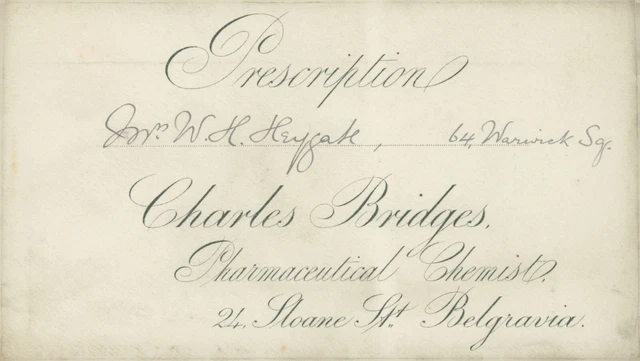 Prescription
Mrs W. H. Heygate, 64, Warwick Sq.
Charles Bridges.
Pharmaceutical Chemist.
24, Sloane St. Belgravia.